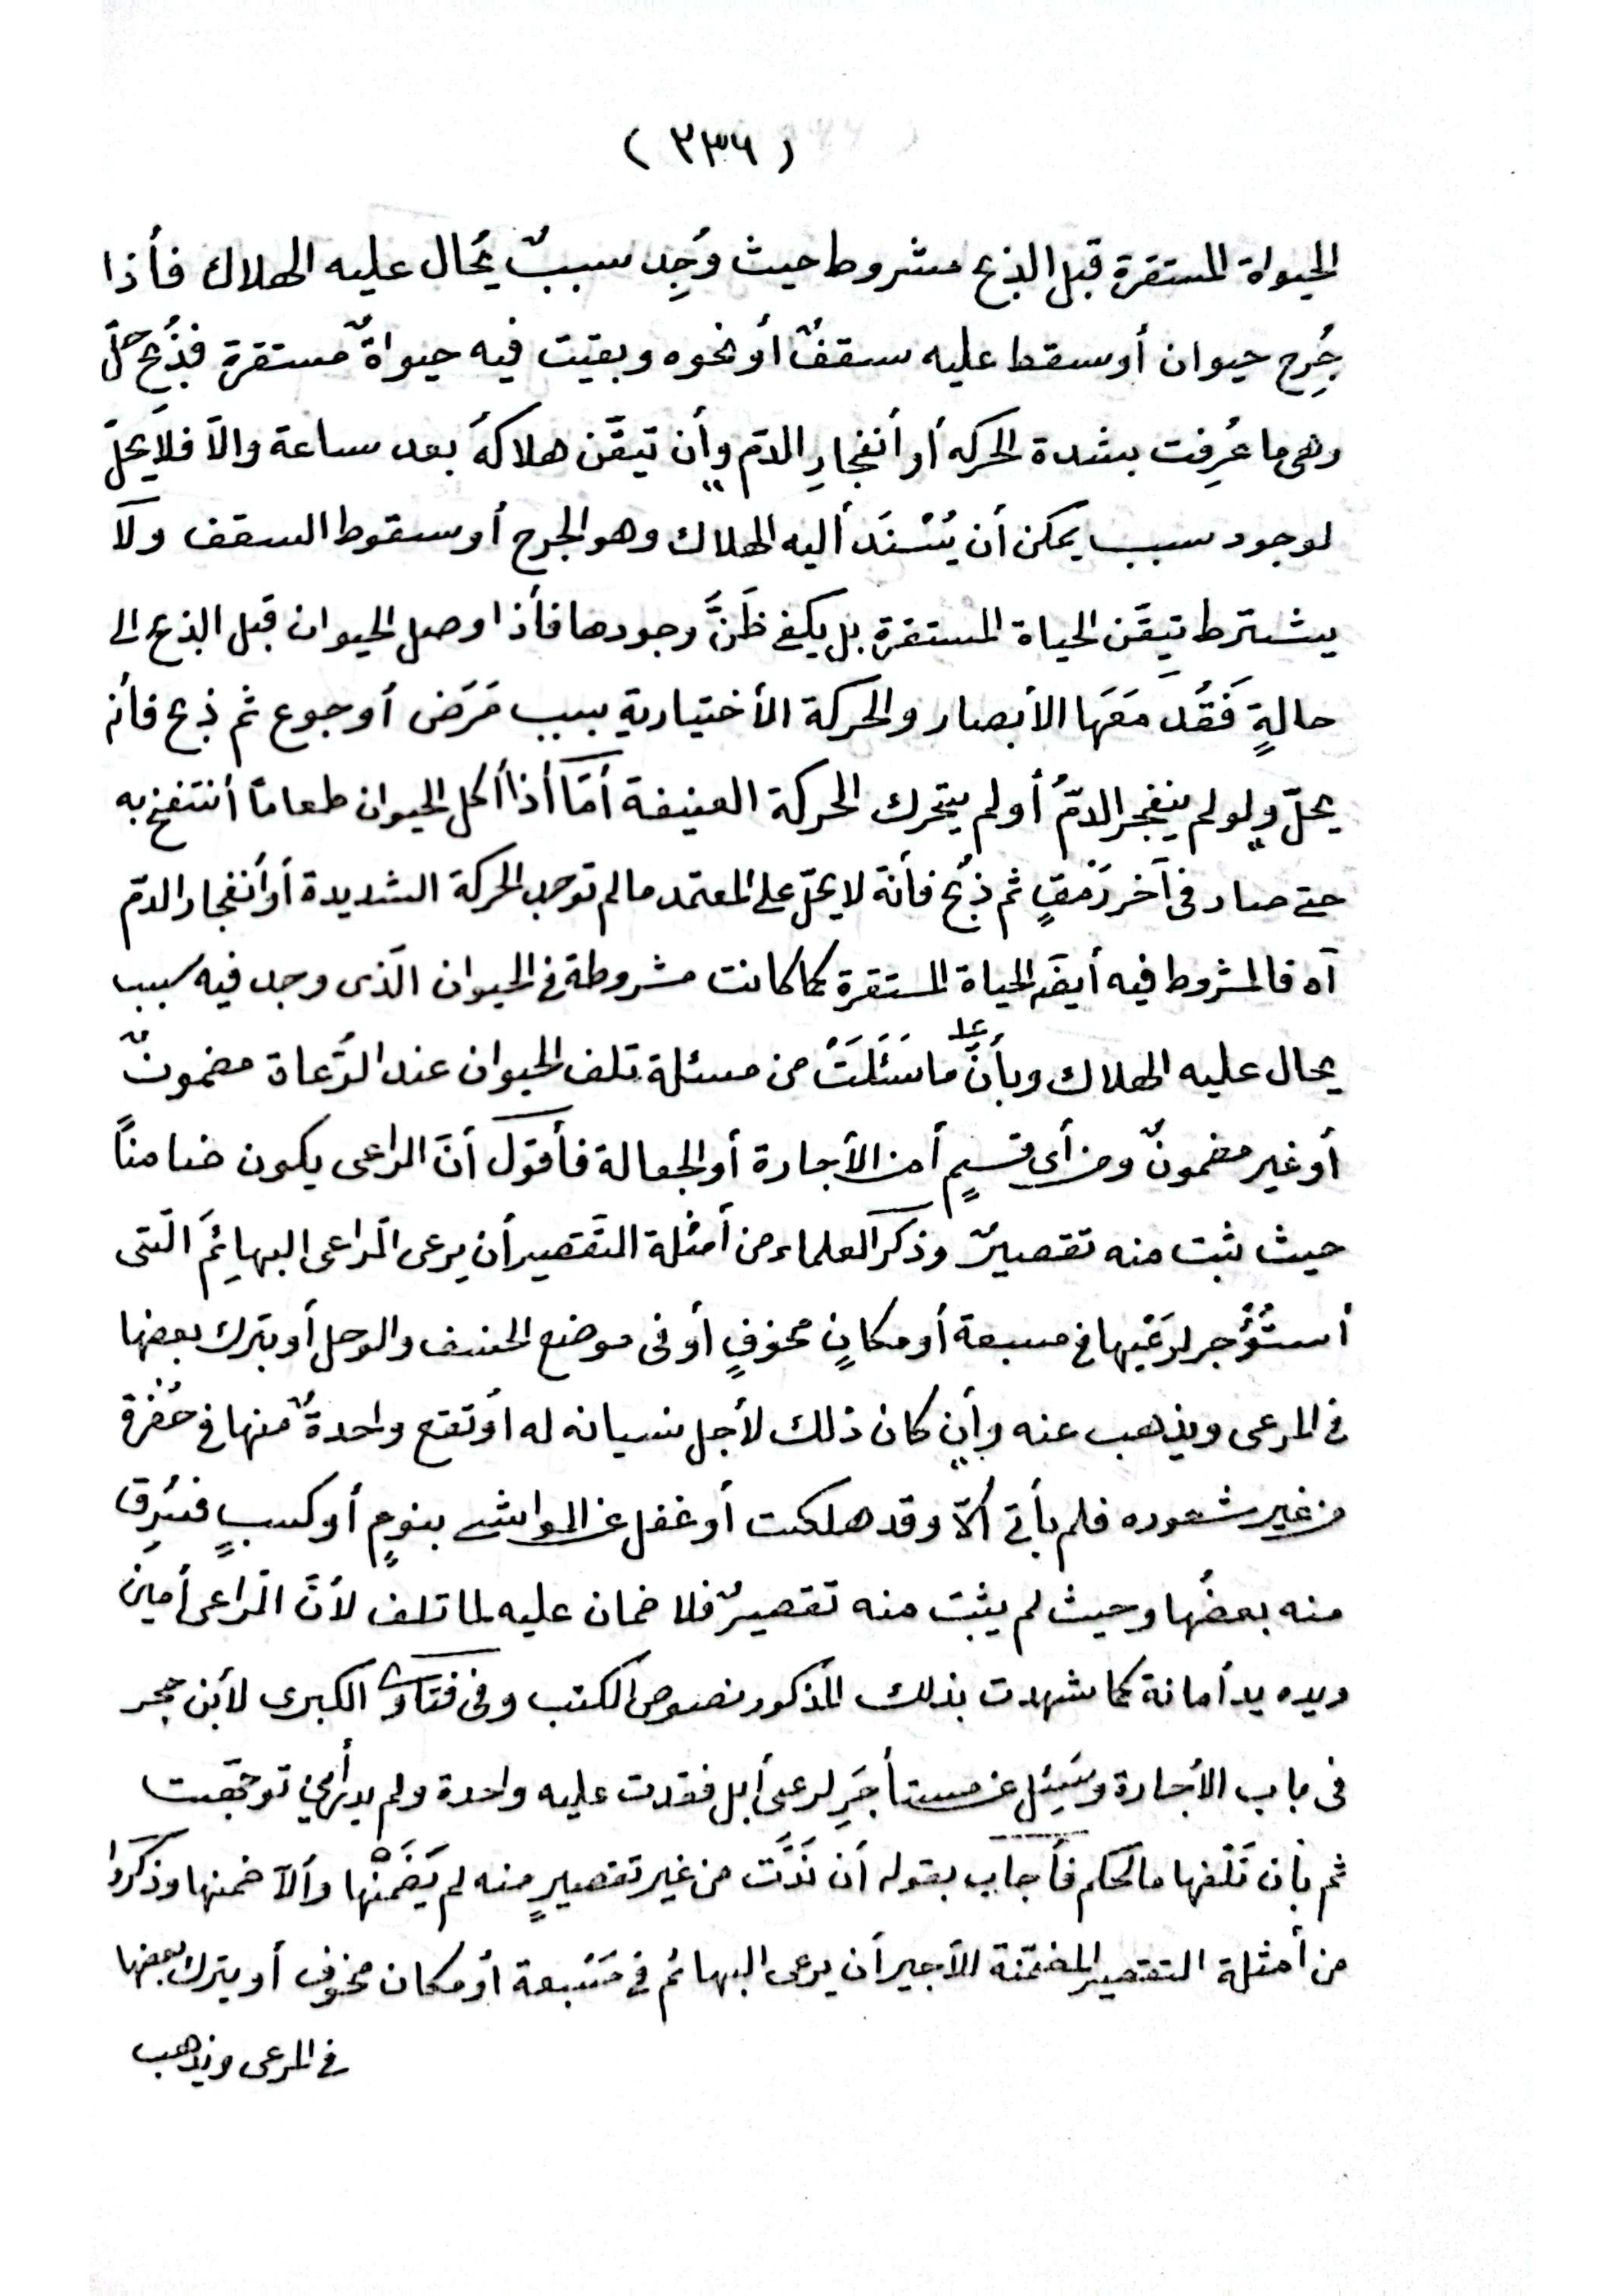 ( ٢٣٦ )
الحيواة المستقرة قبل الذبح مشروط حيث وُجِد سببٌ يُحال عليه الهلاك فأذا
جُرِح حيوان أو سقط عليه سقفٌ أو نحوه وبقيت فيه حيواةٌ مستقرة فذُبِح حلّ
وهى ما عُرِفت بشدة الحركه أو أنفجارِ الدّم وأن تيقّن هلاكهُ بعد ساعة والاّ فلا يحلّ
لوجود سبب يمكن أن يُسْنَد أليه الهلاك وهو الجرح أو سقوط السقف ولا
يشترط تيقّن الحياة المستقرة بل يكفى ظَنّ وجودها فأذا وصل الحيوان قبل الذبح الى
حالةٍ فَقَد مَعَها الأبصار والحركة الأختيارية بسبب مَرَض أو جوع ثم ذبح فأنه
يحلّ ولو لم ينفجر الدّمُ أو لم يتحرك الحركة العنيفة أمّا أذا أكل الحيوان طعاماً أنتفخ به
حتى صار فى آخر رَمَقٍ ثم ذُبح فأنه لا يحلّ على المعتمد ما لم توجد الحركة الشديدة أو أنفجار الدّم
آه فالمشروط فيه أيضًا الحياة المستقرة كما كانت مشروطة فى الحيوان الّذى وجد فيه سبب
يحال عليه الهلاك وبأنّ ما سَئَلَتْ عنه من مسئلة تلف الحيوان عند الرُّعاة مضمونٌ
أو غير مضمونٌ ومن أى قسيمٍ أمن الأجارة أو الجعالة فأقول أنّ الراعى يكون ضامناً
حيث ثبت منه تقصيرٌ وذكر العلماء من أمثلة التّقصير أن يرعى الرّاعى البهائِمَ الّتى
أستُؤْجر لرَعْيِها فى مسبعة أو مكانٍ مخوفٍ أو فى موضع الخسف والوحل أو يترك بعضها
فى المرعى ويذهب عنه وأن كان ذلك لأجل نسيانه له أو تقع واحدةٌ منها فى حُفْرة
من غير شعوره فلم يأتى ألاّ وقد هلكت أو غفل عن المواشى بنومٍ أو كسبٍ فسُرِق
منه بعضُها وحيث لم يثبت منه تقصيرٌ فلا ضمان عليه لما تلف لأنّ الرّاعى أمين
ويده يد أمانة كما شهدت بذلك المذكور نصوص الكتب وفى فتاوى الكبرى لأبن حجر
فى باب الأجارة وسُئِل عن مستأجَرٍ لرعى أبل فقدت عليه واحدة ولم يدر أين توجّهت
ثم بأن تَلَفها ما الحكم فأجاب بقوله أن نَدَّت من غير تقصيرٍ منه لم يَضْمَنْها وألاّ ضمنها وذكروا
من أمثلة التقصير المضمّنة للأجير أن يرعى البهائم فى مَسْبعة أو مكان مخوف أو يترك بعضها
فى المرعى ويذهب